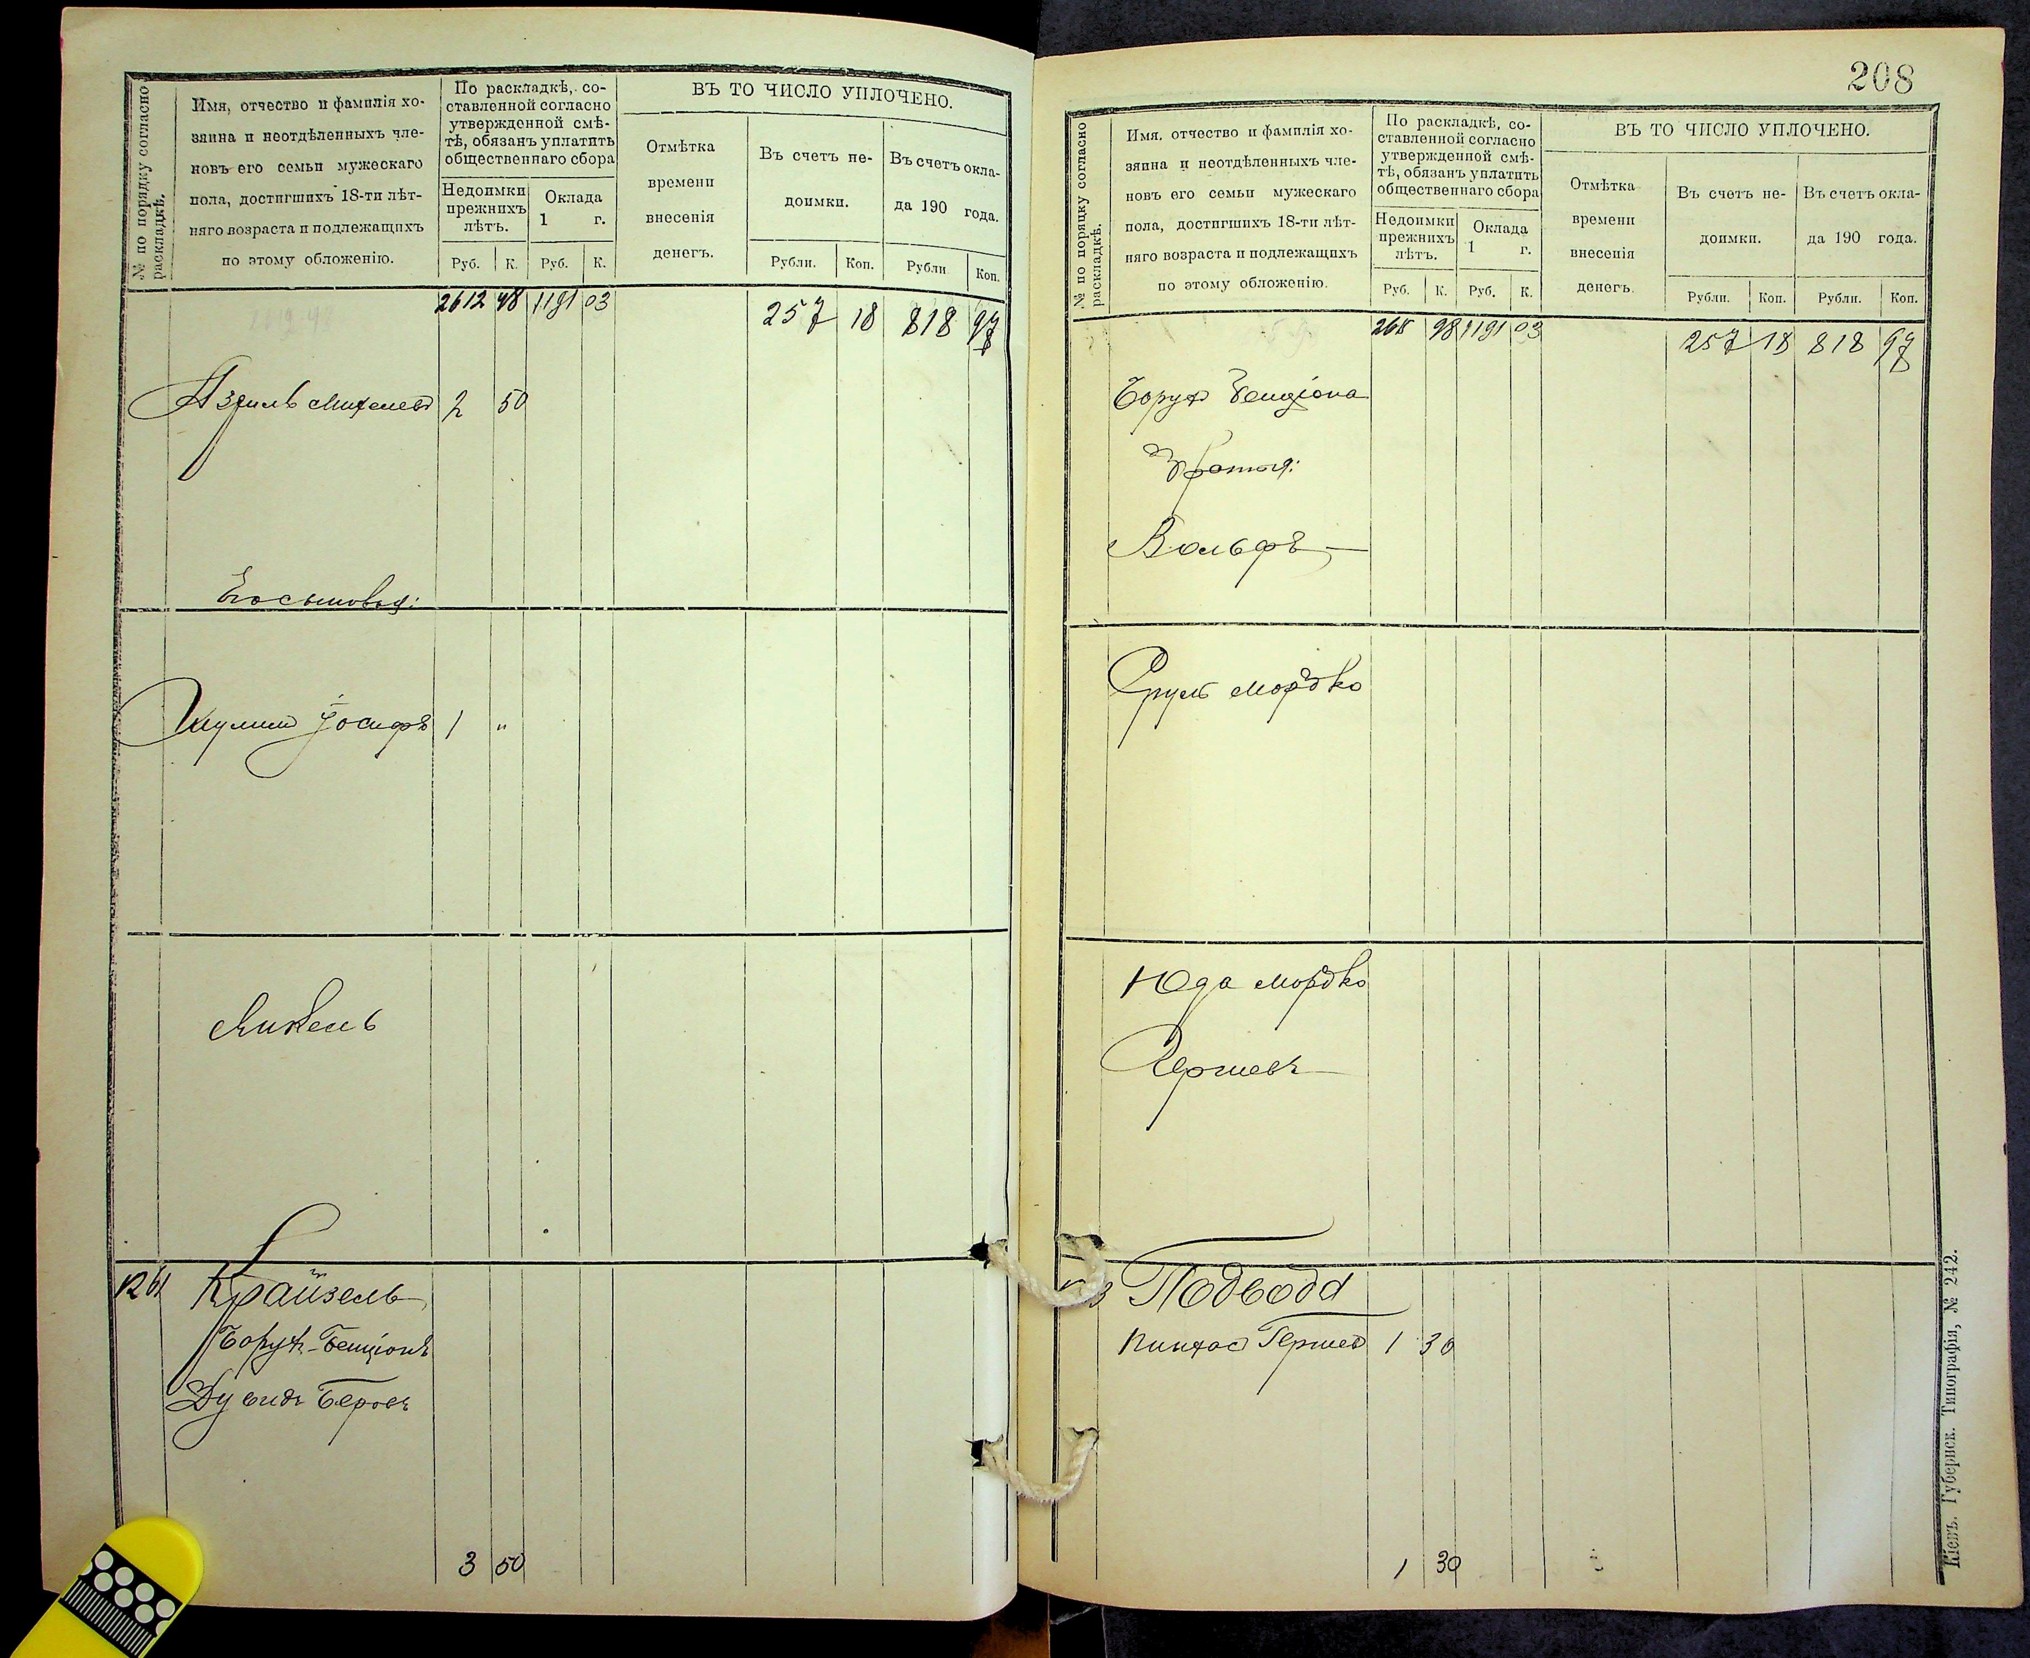 № по порядку согласно раскладкѣ.
Имя, отчество и фамилія хо-
зяина и неотдѣленныхъ чле-
новъ его семьи мужескаго
пола, достигшихъ 18-ти лѣт-
няго возраста и подлежащихъ
по этому обложенію.
По раскладкѣ, со-
ставленной согласно
утвержденной смѣ-
тѣ, обязанъ уплатить
общественнаго сбора
Недоимки
прежнихъ
лѣтъ.
Оклада
1 г.
Руб. К. Руб. К.
ВЪ ТО ЧИСЛО УПЛОЧЕНО.
Отмѣтка
времени
внесенія
денегъ.
Въ счетъ не-
доимки.
Въ счетъ окла-
да 190 года.
Рубли. Коп. Рубли Коп.
2612 48 1191 03 257 18 818 97
Азриль Михелевъ 2 50
Шулим Іосифъ 1 "
1261 Крайзель
Борух-Бенціонъ
Дувидъ Беровъ
3 50
208
№ по порядку согласно раскладкѣ.
Имя, отчество и фамилія хо-
зяина и неотдѣленныхъ чле-
новъ его семьи мужескаго
пола, достигшихъ 18-ти лѣт-
няго возраста и подлежащихъ
по этому обложенію.
По раскладкѣ, со-
ставленной согласно
утвержденной смѣ-
тѣ, обязанъ уплатить
общественнаго сбора
Недоимки
прежнихъ
лѣтъ.
Оклада
1 г.
Руб. К. Руб. К.
ВЪ ТО ЧИСЛО УПЛОЧЕНО.
Отмѣтка
времени
внесенія
денегъ.
Въ счетъ не-
доимки.
Въ счетъ окла-
да 190 года.
Рубли. Коп. Рубли. Коп.
98 1191 03 257 18 818 97
Борух Бенціона
Братья:
Вольфъ
Сруль Мордко
Юда Мордко
Гершевъ
Подвода
Пинхас Гершев 1 30
1 30
Кіевъ. Губернск. Типографія, № 242.